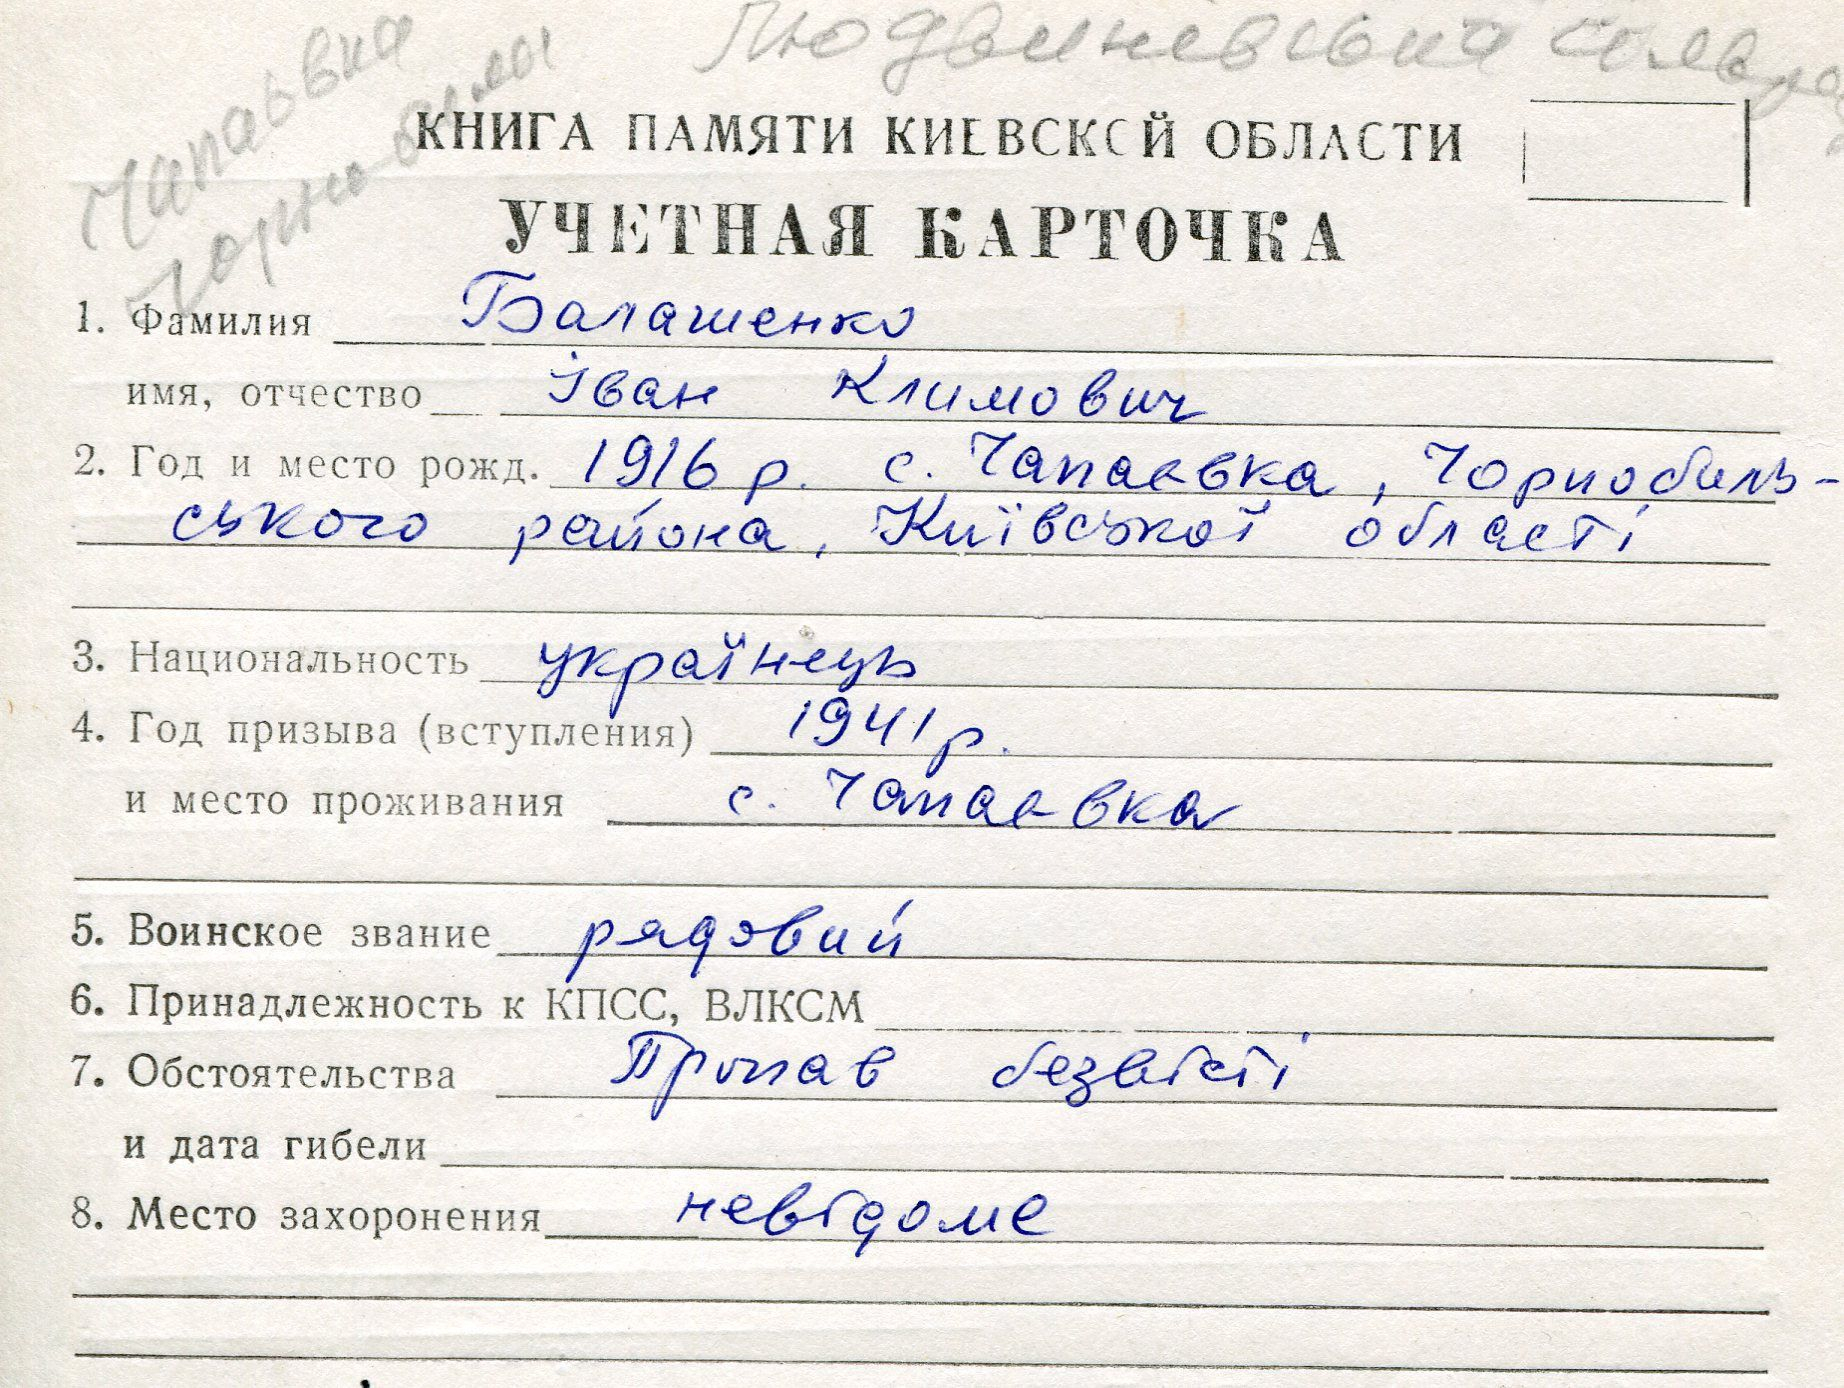 Чапаєвка
КНИГА ПАМЯТИ КИЕВСКОЙ ОБЛАСТИ
УЧЕТНАЯ КАРТОЧКА
1. Фамилия Балашенко
имя, отчество Іван Климович
2. Год и место рожд. 1916 р. с. Чапаевка, Чорнобиль-
ського району, Київської області
3. Национальность українець
4. Год призыва (вступления) 1941 р.
и место проживания с. Чапаевка
5. Воинское звание рядовий
6. Принадлежность к КПСС, ВЛКСМ
7. Обстоятельства Пропав безвісті
и дата гибели
8. Место захоронения невідоме